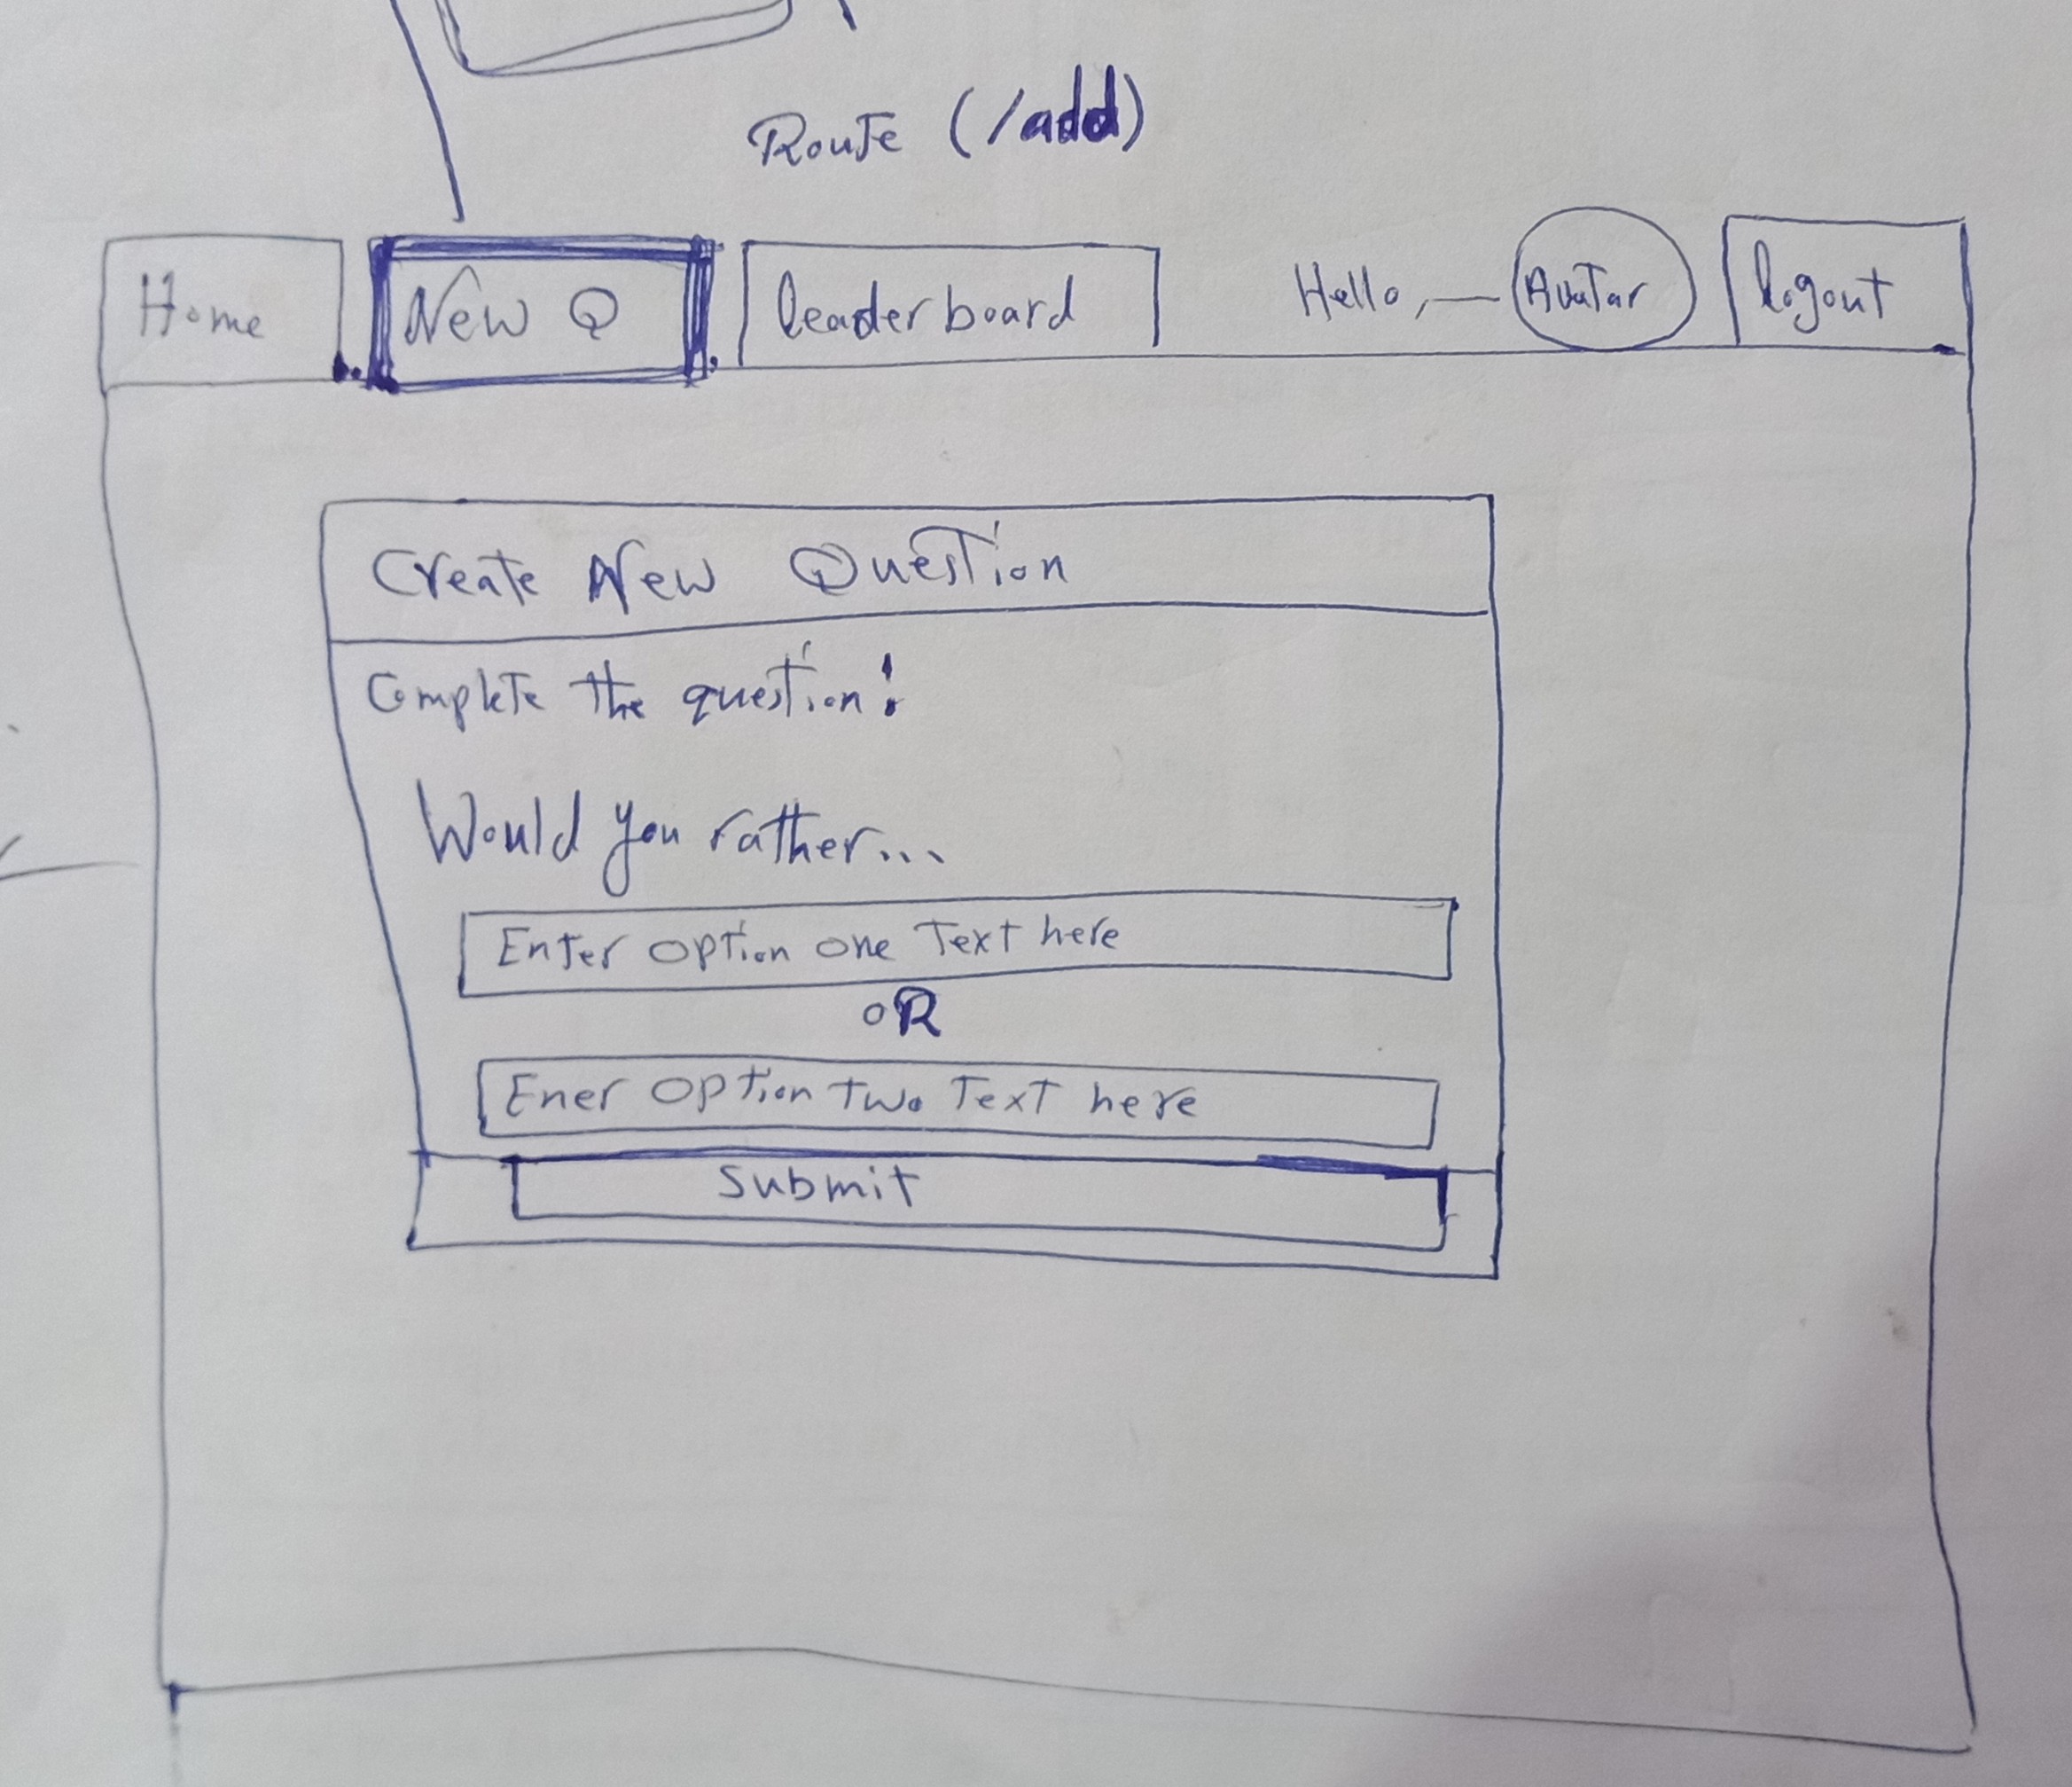 Route (/add)
Home New Q leaderboard Hello, — Avatar logout
Create New Question
Complete the question:
Would you rather...
Enter option one Text here
oR
Ener option Two Text here
Submit